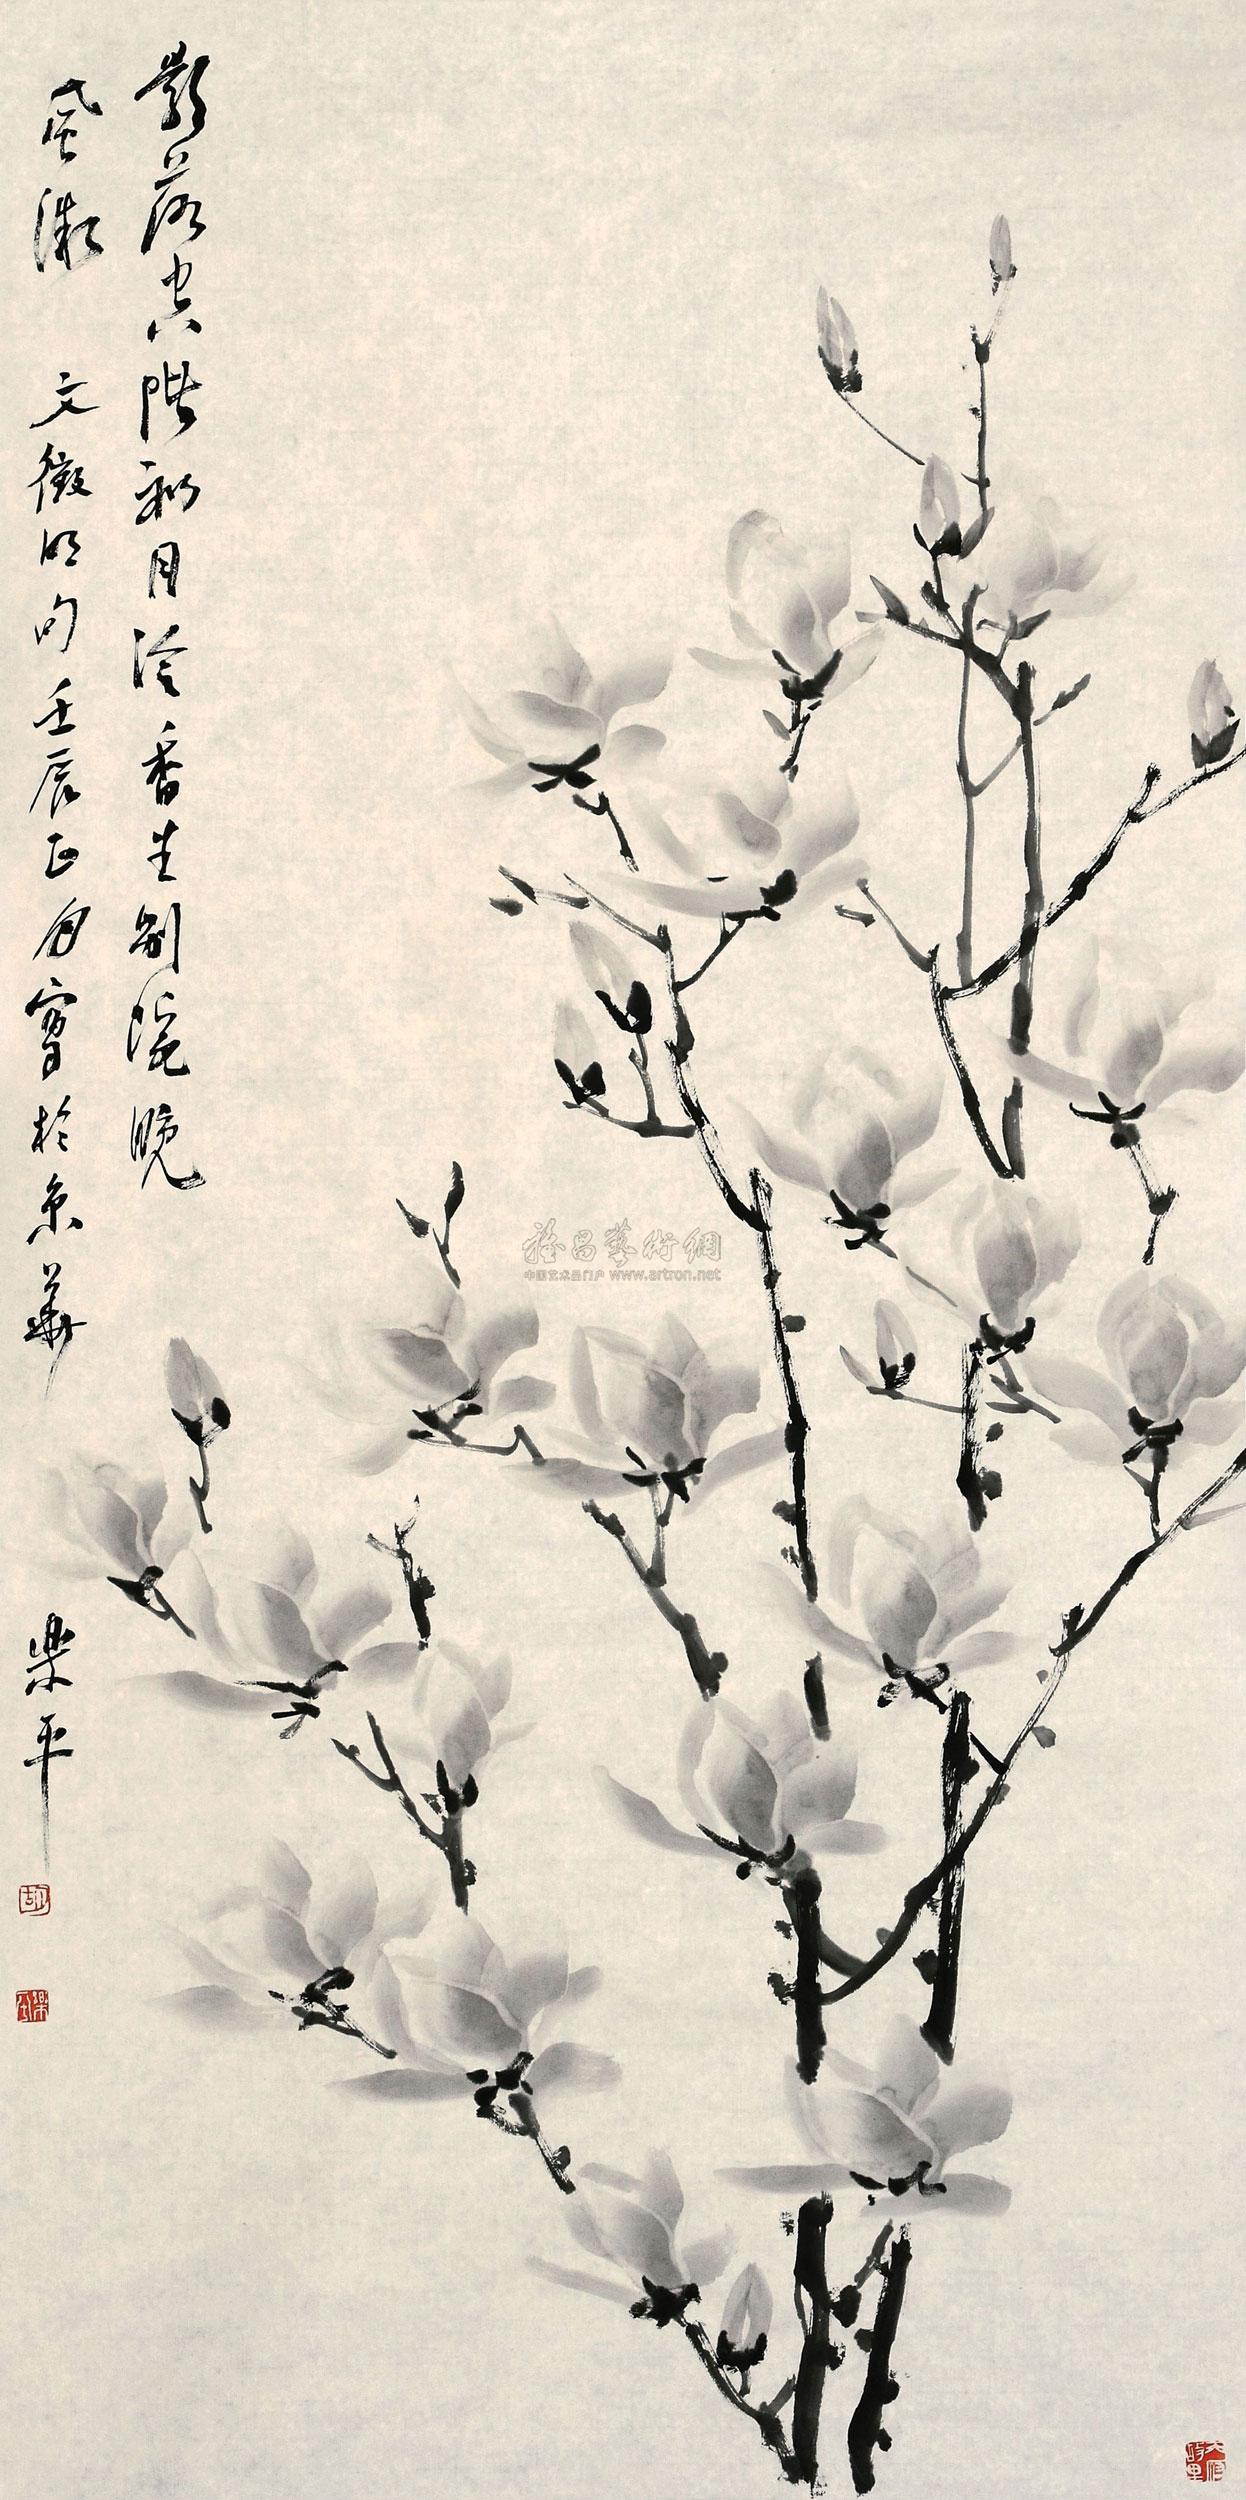 影落空阶初月冷香生别院晚
风微 文徵明句壬辰正月写於京华
乐平
雅昌藝術網
中国艺术品门户 www.artron.net